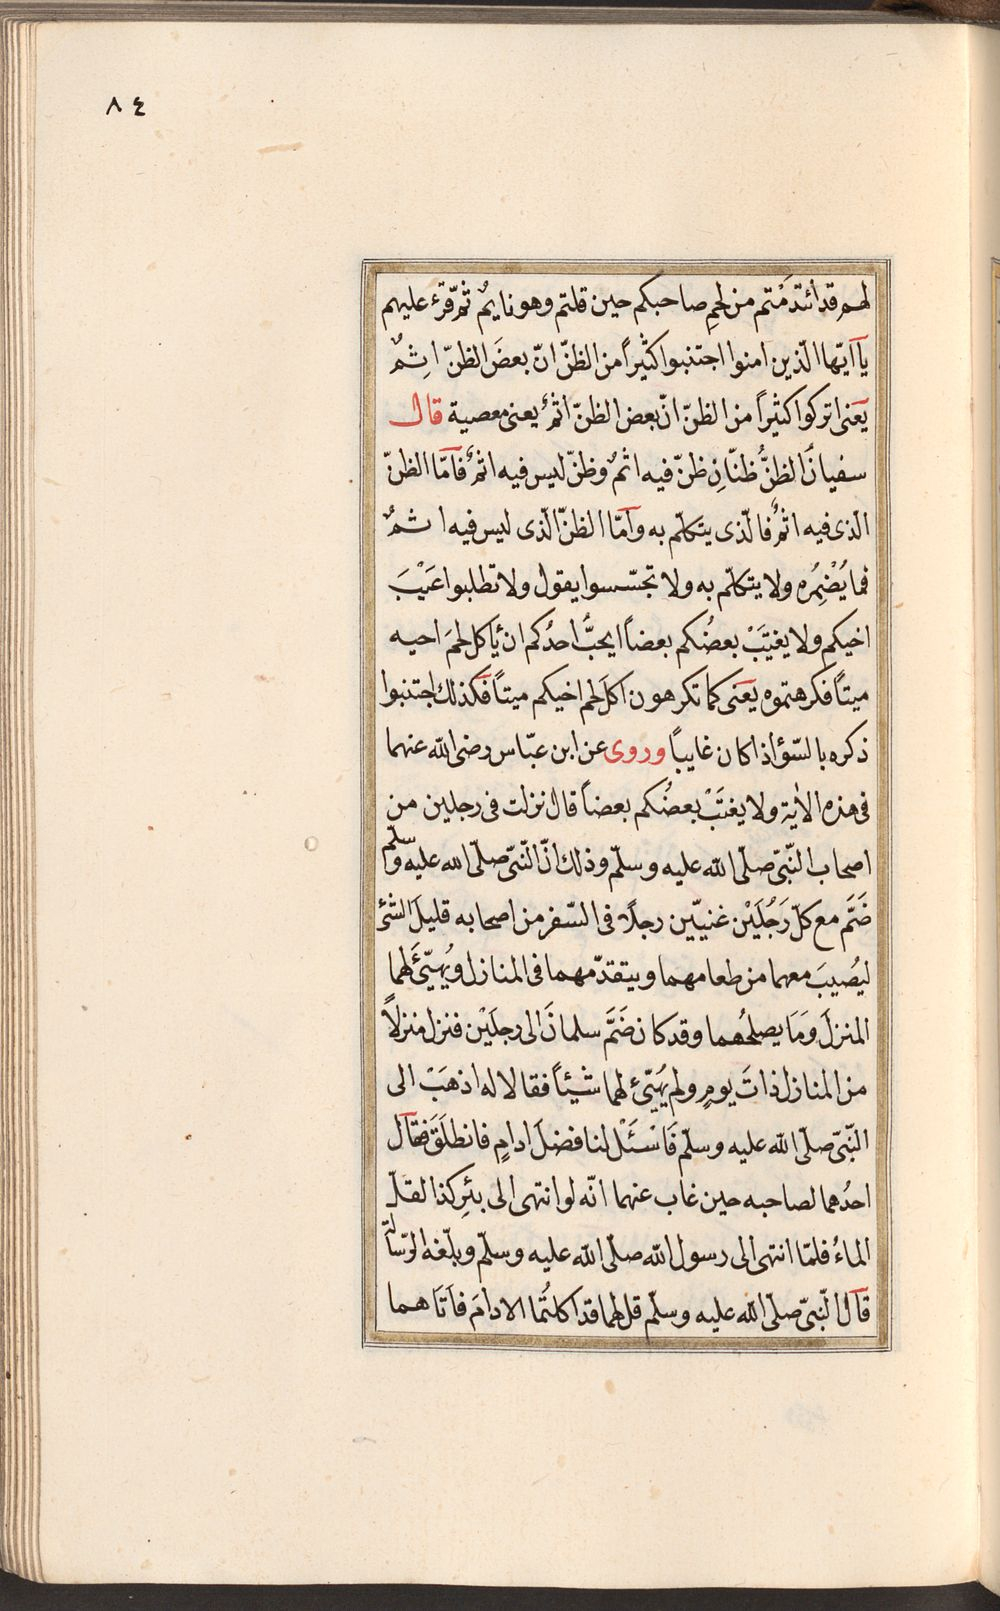 ٨٤
لهم قد ائتدمتم من لحم صاحبكم حين قلتم وهو نايمٌ ثمّ قرء عليهم
يآ ايّها الّذين امنوا اجتنبوا كثيراً من الظنّ انّ بعضَ الظنّ اِثمٌ
يعنى اتركوا كثيراً من الظنّ انّ بعض الظنّ اثمٌ يعنى معصية قال
سفيانُ الظنُّ ظنّانِ ظنّ فيه اثمٌ وظنّ ليس فيه اثمٌ فامّا الظنّ
الّذى فيه اثمٌ فالّذى يتكلّم به وامّا الظنّ الّذى ليس فيه اثمٌ
فما يُضْمِرُه ولا يتكلّم به ولا تجسّسوا يقول ولا تطلبوا عَيْبَ
اخيكم ولا يغيتَبْ بعضُكم بعضاً ايحبُّ احدُكم ان ئاكل لحمَ اخيه
ميتاً فكرهتموه يعنى كما تكرهون اكلَ لحم اخيكم ميتاً فكذلك اجتنبوا
ذكره بالسّؤ اذا كان غايباً وروى عن ابن عبّاس رضى الله عنهما
فى هذه الاية ولا يغتَبْ بعضُكم بعضاً قال نزلت فى رجلين من
اصحاب النّبىّ صلّى الله عليه وسلّم وذلك انّ النّبىّ صلّى الله عليه وسلّم
ضَمَّ مع كلّ رَجُلَيْن غنيّين رجلًا فى السّفر من اصحابه قليلَ الشئ
ليُصيبَ معهما من طعامهما ويتقدّمهما فى المنازل ويُهيّئَ لهما
المنزلَ وَمَا يصلحُهما وقد كان ضَمَّ سلمانَ الى رجلَيْن فنزل منزلاً
من المنازل ذاتَ يومٍ ولم يُهيّئ لهما شيئاً فقالا له اذهَبْ الى
النّبىّ صلّى الله عليه وسلّم فَاسْئَلْ لنا فضلَ ادامٍ فانطلَقَ فقال
احدُهما لصاحبه حين غاب عنهما انّه لو انتهى الى بئرِ كذا لقلّ
الماءُ فلمّا انتهى الى رسول الله صلّى الله عليه وسلّم وبلّغه الرّسالة
قال النّبىّ صلّى الله عليه وسلّم قل لهما قد اكلتُما الادامَ فاَتَاهما